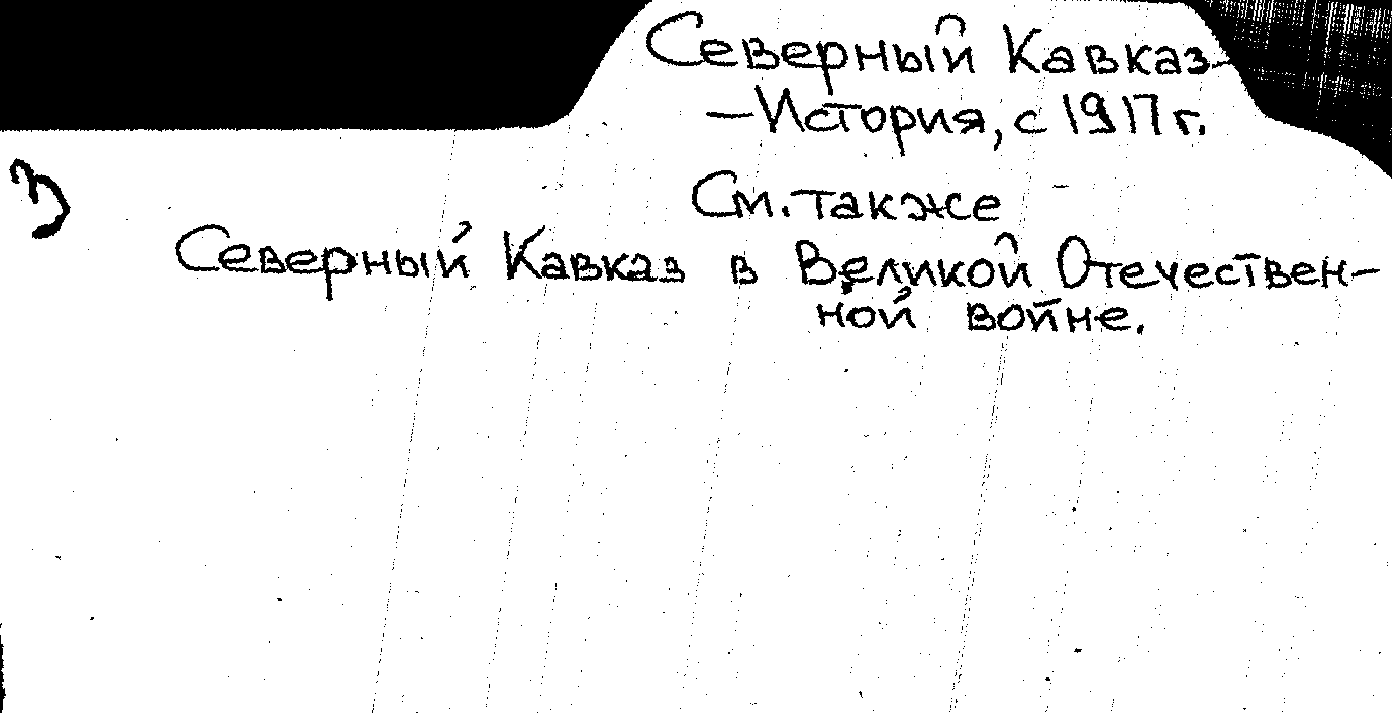 Северный Кавказ-
—История, с 1917 г.
См. также
Северный Кавказ в Великой Отечествен-
ной войне.